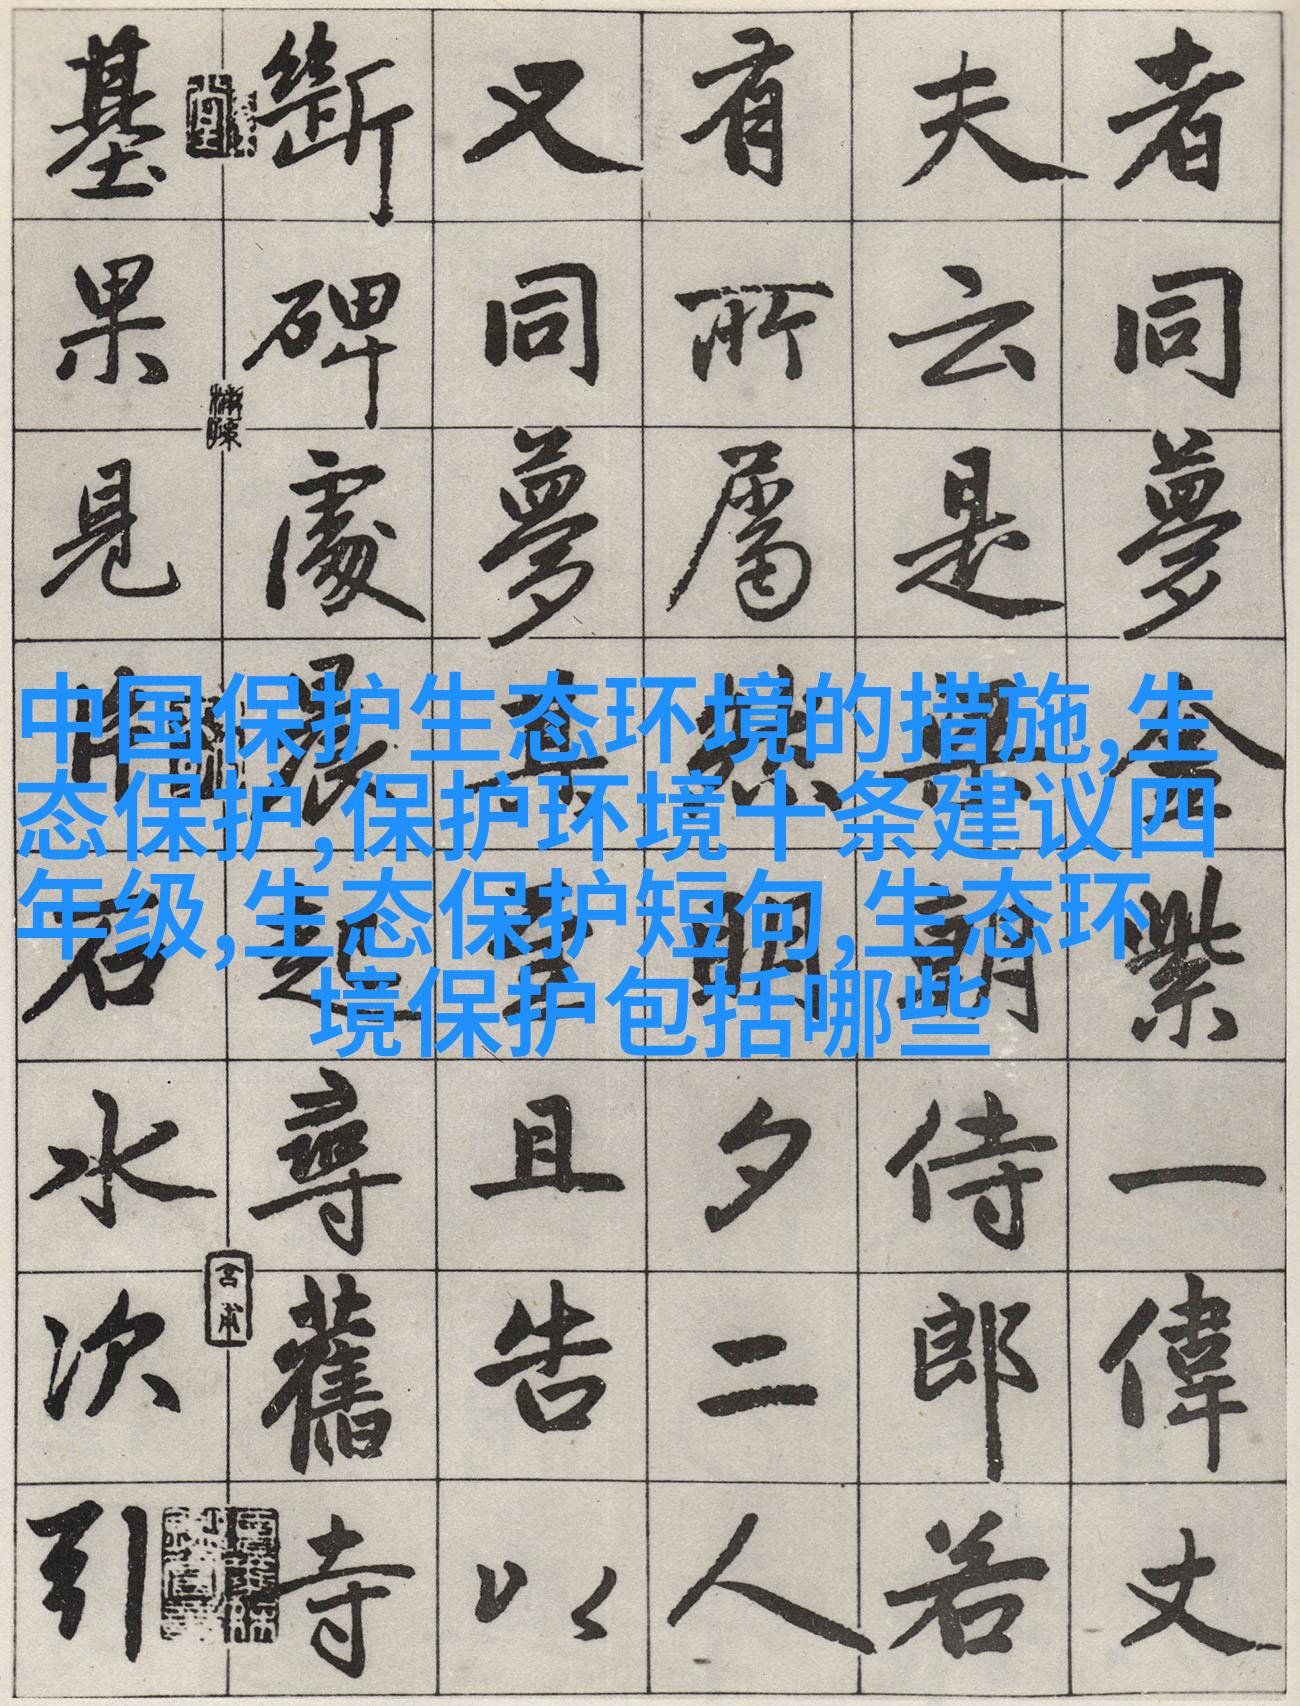 中国保护生态环境的措施,生
态保护,保护环境十条建议四
年级,生态保护短句,生态环
境保护包括哪些
者同夢金紫一偉丈
夫云是朝侍郎若
有所屬明夕二人
又同夢其且告以
斷碑處晨起尋舊寺
基果見石水次引